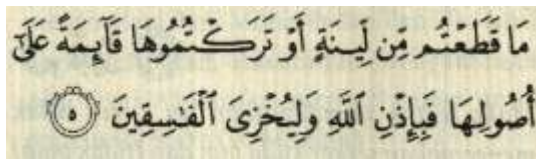 مَا قَطَعْتُم مِّن لِّينَةٍ أَوْ تَرَكْتُمُوهَا قَآئِمَةً عَلَىٰٓ
أُصُولِهَا فَبِإِذْنِ اللَّهِ وَلِيُخْزِىَ الْفَـٰسِقِينَ ٥